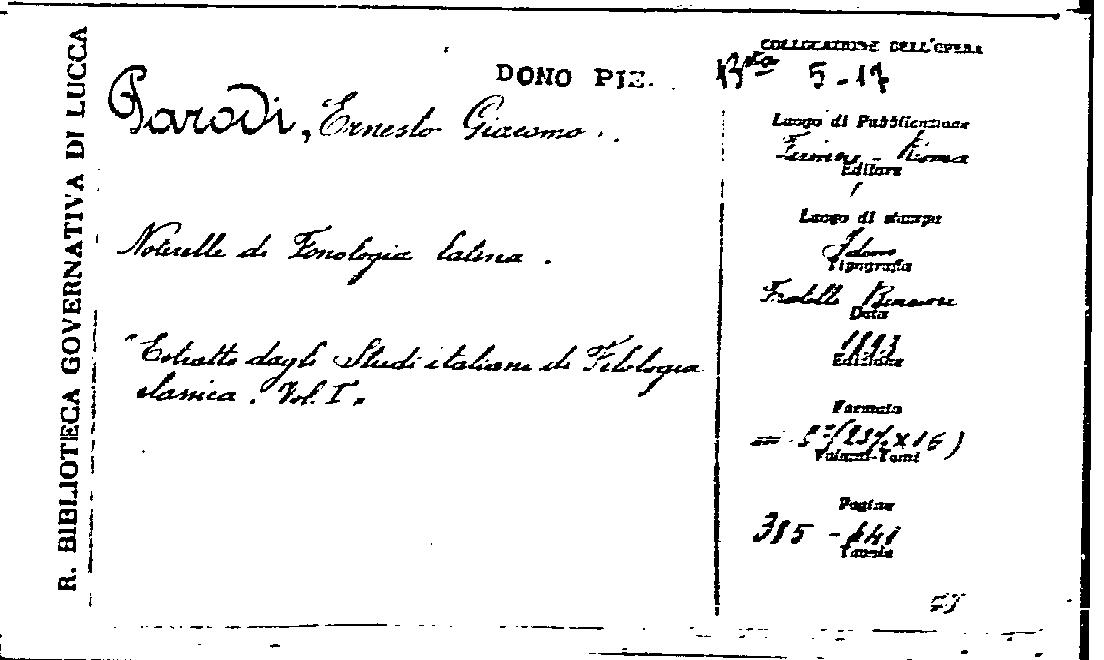 R. BIBLIOTECA GOVERNATIVA DI LUCCA
DONO PIE.
Parodi, Ernesto Giacomo.
Noterelle di Fonologia latina.
"Estratto dagli Studi italiani di Filologia
classica. Vol. I.
COLLOCAZIONE DELL'OPERA
Bta 5-17
Luogo di Pubblicazione
Firenze - Roma
Editore
Luogo di stampa
Idem
Tipografia
Fratelli Bencini
Data
1893
Edizione
Formato
Volumi-Tomi
Pagine
385 - 441
Tavole